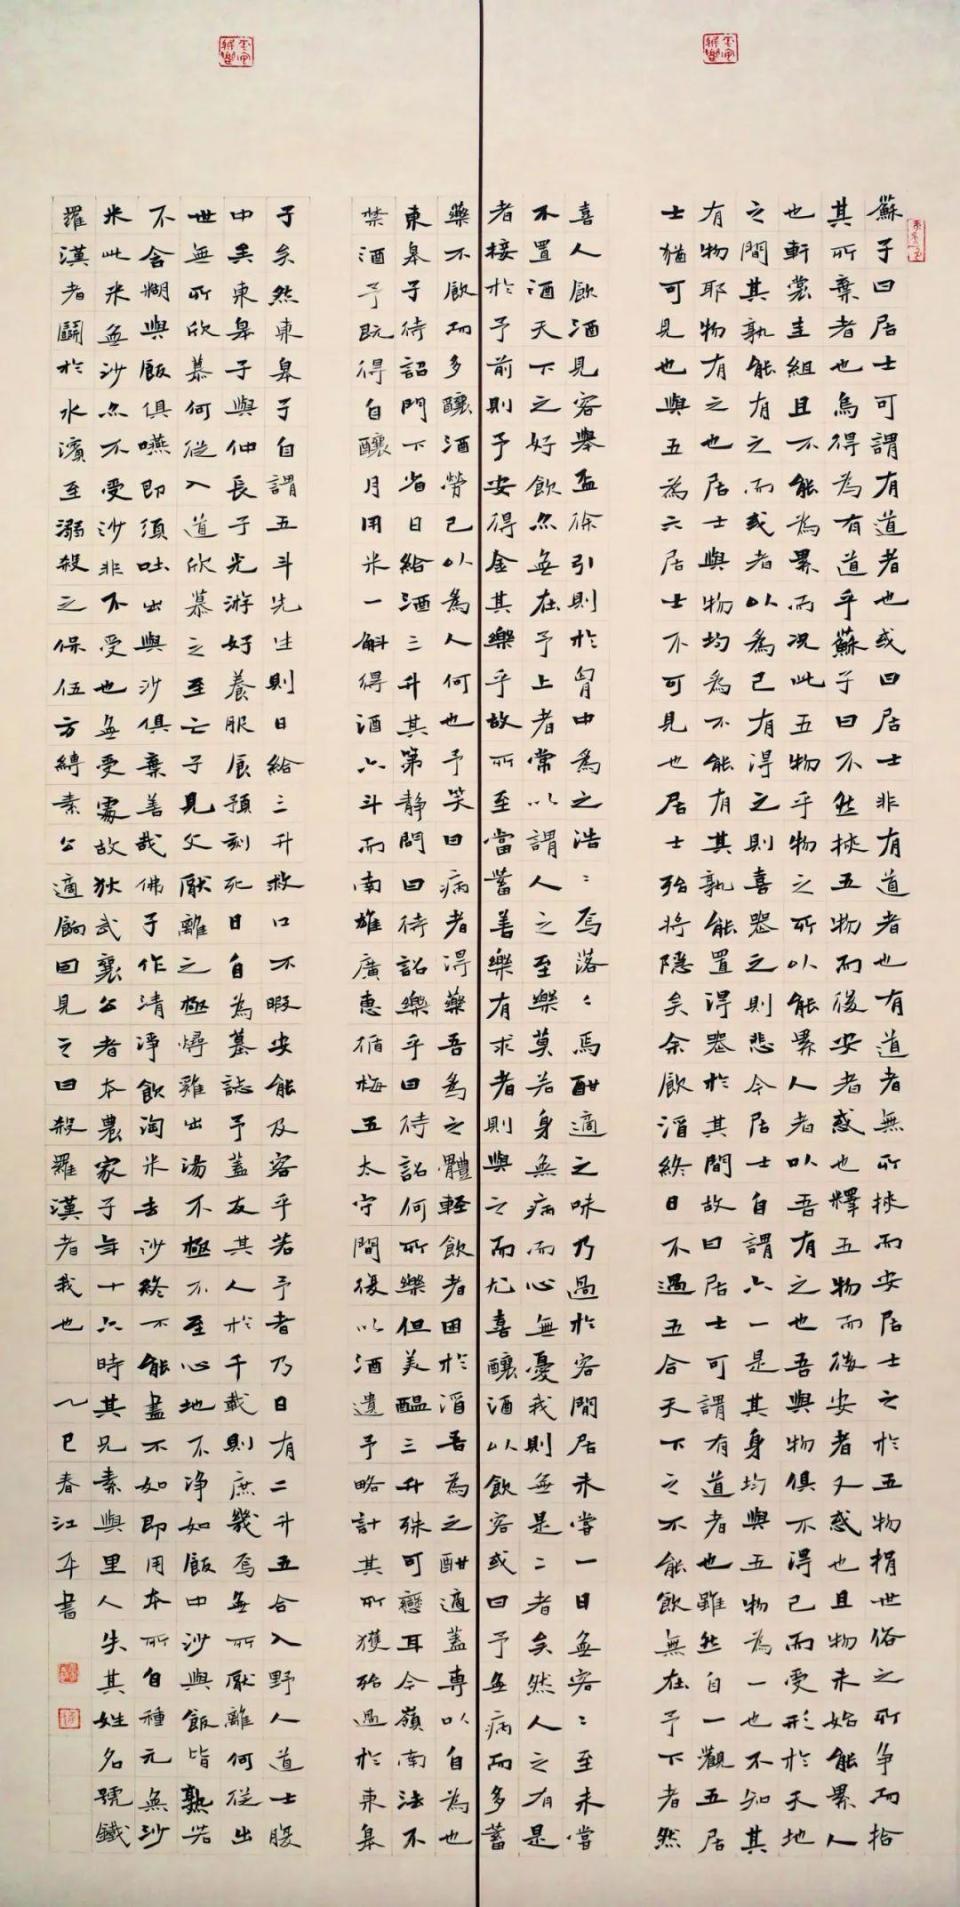 蘇子曰居士可謂有道者也或曰居士非有道者也有道者無所挾而安居士之於五物捐世俗之所爭而拾
其所棄者也烏得為有道乎蘇子曰不然挾五物而後安者惑也釋五物而後安者又惑也且物未始能累人
也軒裳圭組且不能為累而況此五物乎物之所以能累人者以吾有之也吾與物俱不得已而受形於天地
之間其孰能有之而或者以為己有得之則喜喪之則悲今居士自謂六一是其身均與五物為一也不知其
有物耶物有之也居士與物均為不能有其孰能置得喪於其間故曰居士可謂有道者也雖然自一觀五居
士猶可見也與五為六居士不可見也居士殆將隱矣余飲酒終日不過五合天下之不能飲無在予下者然
喜人飲酒見客舉盃徐引則於胷中為之浩:焉落:焉酣適之味乃過於客閒居未嘗一日無客:至未嘗
不置酒天下之好飲亦無在予上者常以謂人之至樂莫若身無病而心無憂我則無是二者矣然人之有是
者接於予前則予安得全其樂乎故所至當蓄善樂有求者則與之而尤喜釀酒以飲客或曰予無病而多蓄
藥不飲而多釀酒勞己以為人何也予笑曰病者得藥吾為之體輕飲者困於酒吾為之酣適蓋專以自為也
東皋子待詔門下省日給酒三升其第靜問曰待詔樂乎曰待詔何所樂但美醞三升殊可戀耳今嶺南法不
禁酒予既得自釀月用米一斛得酒六斗而南雄廣惠循梅五太守間復以酒遺予略計其所獲殆過於東皋
子矣然東皋子自謂五斗先生則日給三升救口不暇安能及客乎若予者乃日有二升五合入野人道士腹
中矣東皋子與仲長子光游好養服食預刻死日自為墓誌予蓋友其人於千載則庶幾焉無所厭離何從出
世無所欣慕何從入道欣慕之至亡子見父厭離之極燖雞出湯不極不至心地不净如飯中沙與飯皆熟若
不含糊與飯俱嚥即須吐出與沙俱棄善哉佛子作清淨飲淘米去沙終不能盡不如即用本所自種元無沙
米此米無沙亦不受沙非不受也無受處故狄武襄公者本農家子年十六時其兄素與里人失其姓名號鐵
羅漢者鬭於水濱至溺殺之保伍方縛素公適餉田見之曰殺羅漢者我也 乙巳春江平書